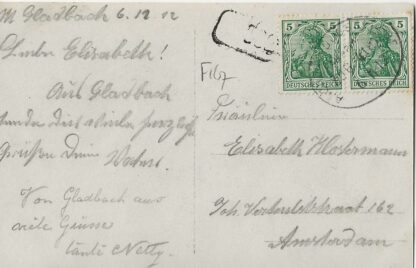 M Gladbach 6.12.12
Liebe Elisabeth!
Aus Gladbach
Grüßen Dein
Von Gladbach aus
viele Grüsse
tante Netty.
5
5
DEUTSCHES REICH
DEUTSCHES REICH
Fräulein
Elisabeth Klostermann
Joh. Verhulststraat 162
Amsterdam